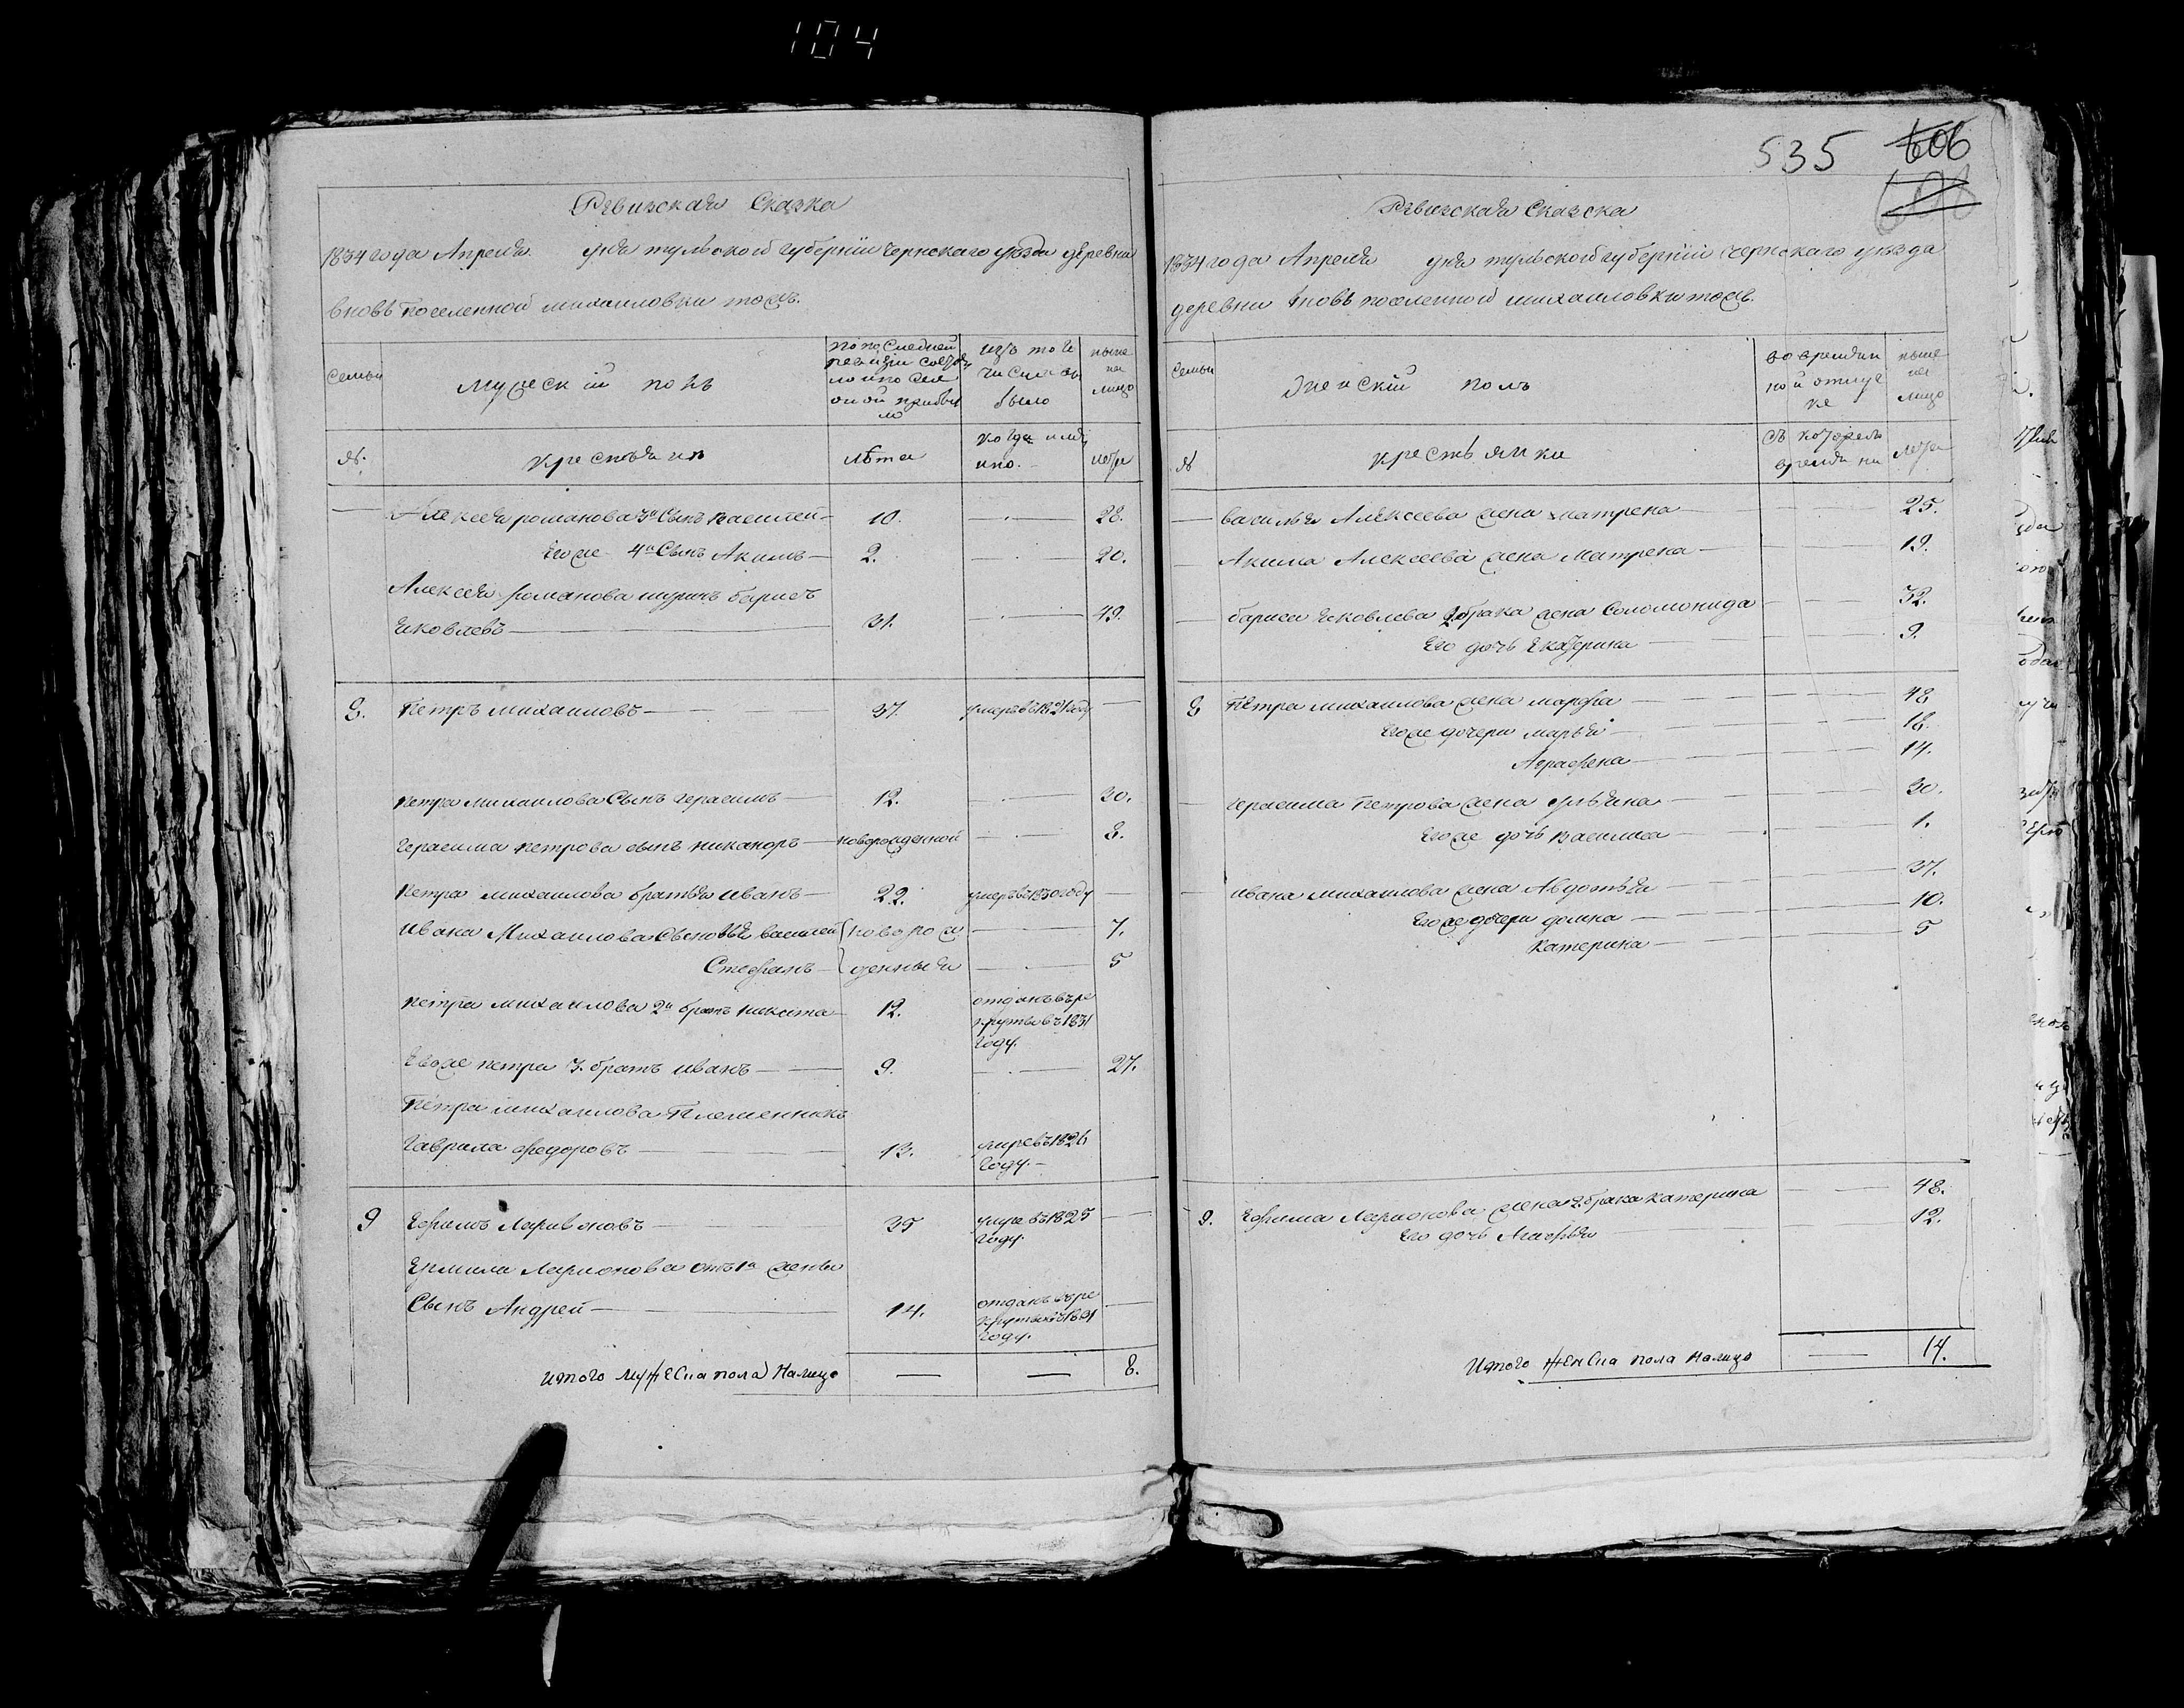 104
Ревизская Сказка
1834 года Апреля дня тульской губернии чернскаго уезда деревни
вновь поселенной михаиловки тожъ.
семьи
мужескiй полъ
по последней ревизiи состояло и после оной прибыло
изъ того числа выбыло
ныне на лицо
№.
крестьяня
лѣта
когда имянно.
лета
Алексея романова 3й Сынъ василей 10. 28.
Егоже 4й Сынъ Акимъ 2. 20.
Алексея романова шуринъ барисъ
яковлевъ 31. 49.
8. Петръ михаиловъ 37. умеръ въ 1821 году
петра михаилова Сынъ герасимъ 12. 30.
герасима петрова сынъ никаноръ новорожденной 8.
петра михаилова братья иванъ 22. умеръ въ 1830 году
ивана Михаилова Сыновья василей новорож 7.
Стефанъ денныя 5
петра михаилова 2й братъ никита 12. отданъ въ рекруты въ 1831 году.
Егоже петра 3. братъ иванъ 9. 27.
петра михаилова Племенникъ
гаврила федоровъ 13. умре въ 1826 году.
9 Ефимъ Ларивоновъ 35 умре въ 1825 году.
Ермила Ларионова отъ 1й жены
Сынъ Андрей 14. отданъ въ рекруты въ 1831 году.
Итого мужеска пола Налицо 8.
535 606
Ревизская Сказска
1834 года Апреля дня тульской губернiи Чернскаго уезда
деревни вновь поселенной михаиловки тожъ.
семьи
Женскiй полъ
во временной отлучке
ныне на лицо
№
крестьянки
съ котораго времяни
лета
василья Алексеева жена матрена 25.
Акима Алексеева жена Матрена 19.
бариса яковлева 2 брака жена Соломонида 32.
Его дочь Екатерина 9.
8 Петра михаилова жена марфа 48
Егоже дочери марья 18.
Аграфена 14.
герасима Петрова жена ульяна 30.
Егоже дочь василиса 1.
ивана михаилова жена Авдотья 37.
Егоже дочери домна 10.
катерина 5
9. Ефима Ларионова жена 2 брака катерина 48.
Его дочь Марья 12.
Итого женска пола налицо 14.